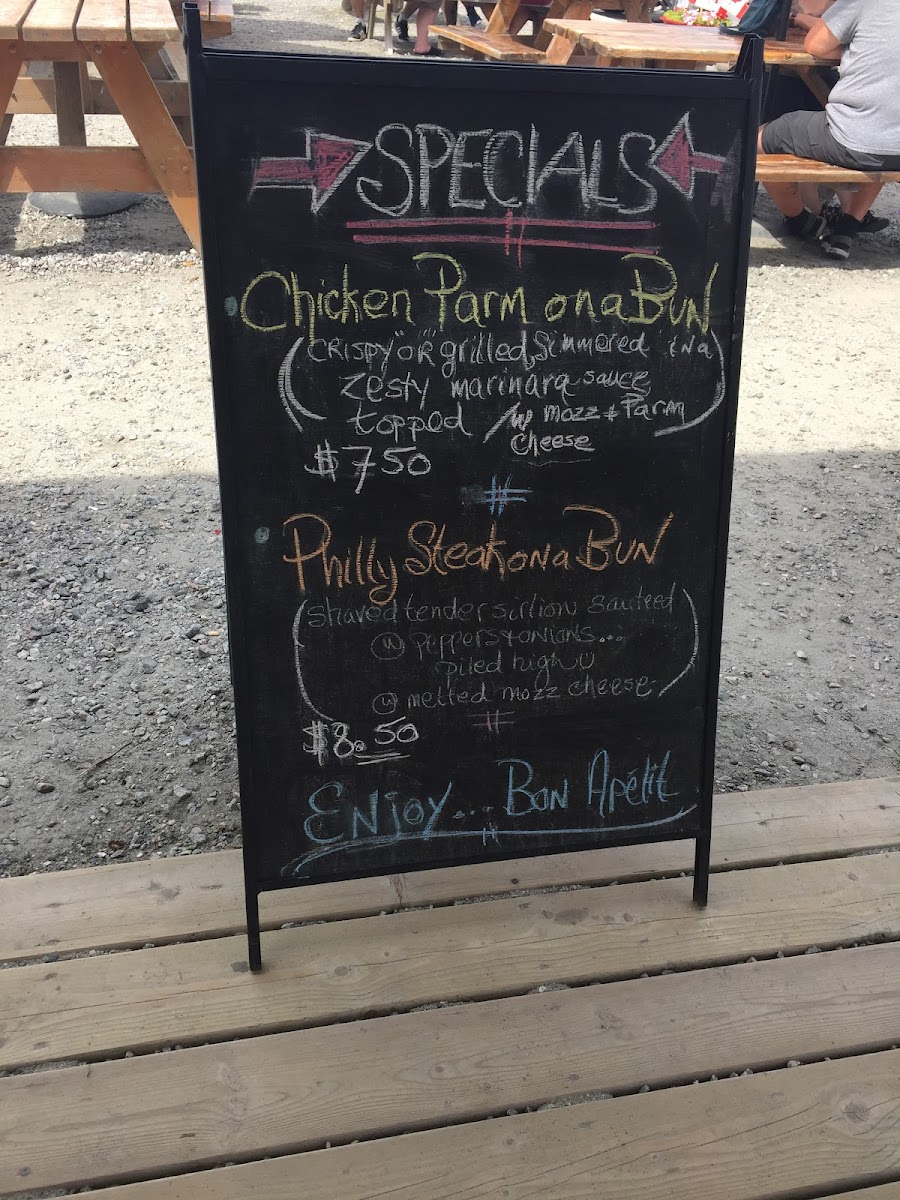 SPECIALS
Chicken Parm on a BUN
(CRISPY "OR" grilled, Simmered iN a
Zesty marinara sauce
topped /w mozz + Parm
Cheese)
$7 50
#
Philly Steak on a BUN
(shaved tender sirlion sauteed
@ peppers + onions...
piled high
@ melted mozz cheese)
#
$8.50
ENjoy... Bon Apétit